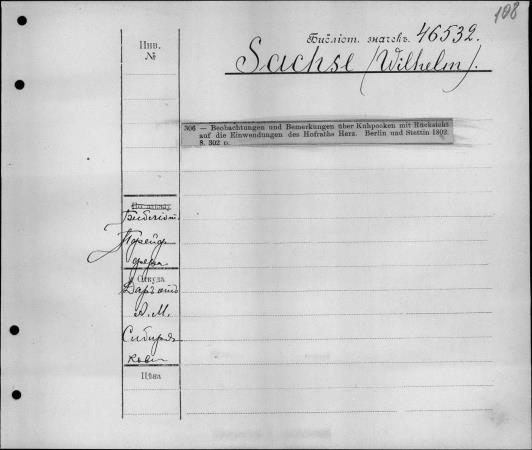 108
Библіот. значекъ. 46532.
Инв.
№
Sachse (Wilhelm).
306 — Beobachtungen und Bemerkungen über Kuhpocken mit Rücksicht
auf die Einwendungen des Hofraths Herz. Berlin und Stettin 1802.
8. 302 p.
Библіот.
Прейф-
Откуда
Даръ отъ
А. М.
Сибиря-
кова
Цѣна